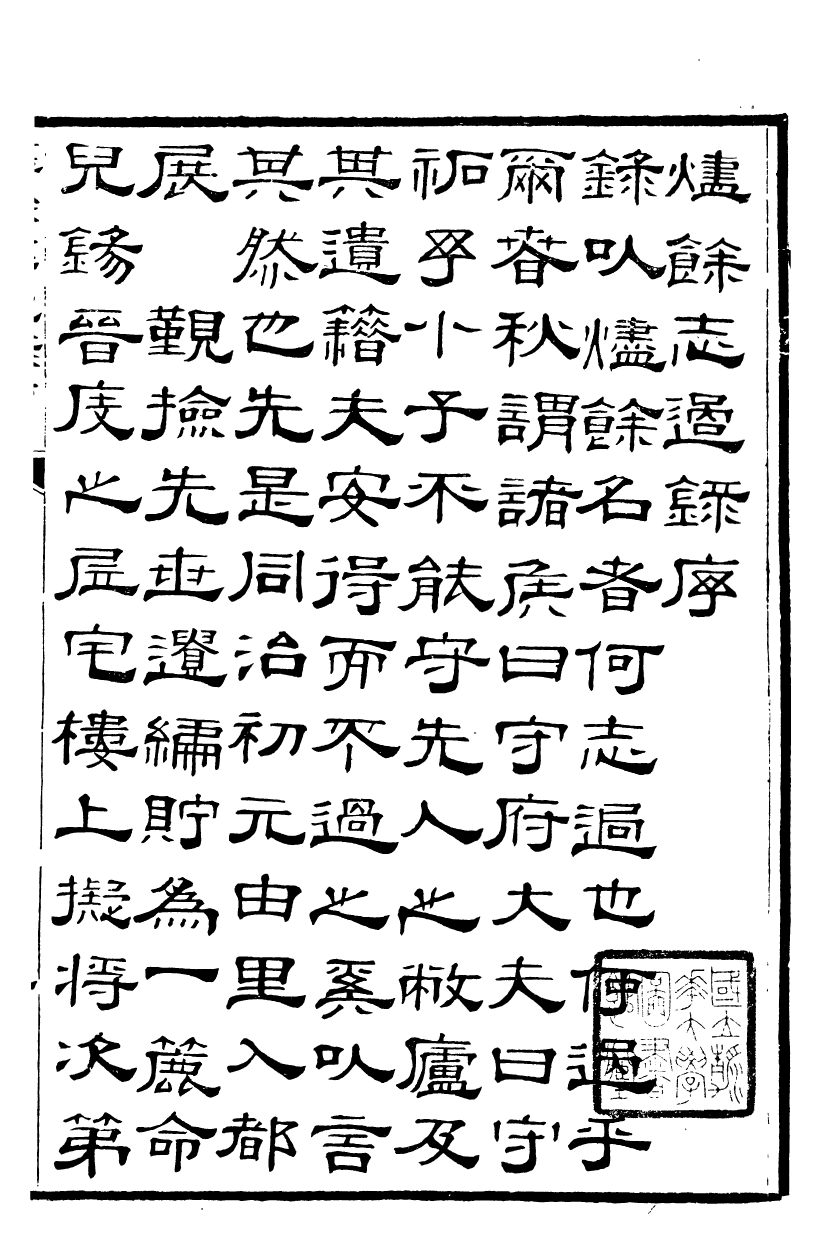 燼餘志過錄序
錄以燼餘名者何志過也何過乎
爾春秋謂諸侯曰守府大夫曰守
祏乎小子不能守先人之敝廬及
其遺籍夫安得而不過之奚以言
其然也先是同治初元由里入都
展　覲撿先世遺編貯為一簏命
兒鍚晉庋之居宅樓上擬將次第
國立清
華大學
圖書